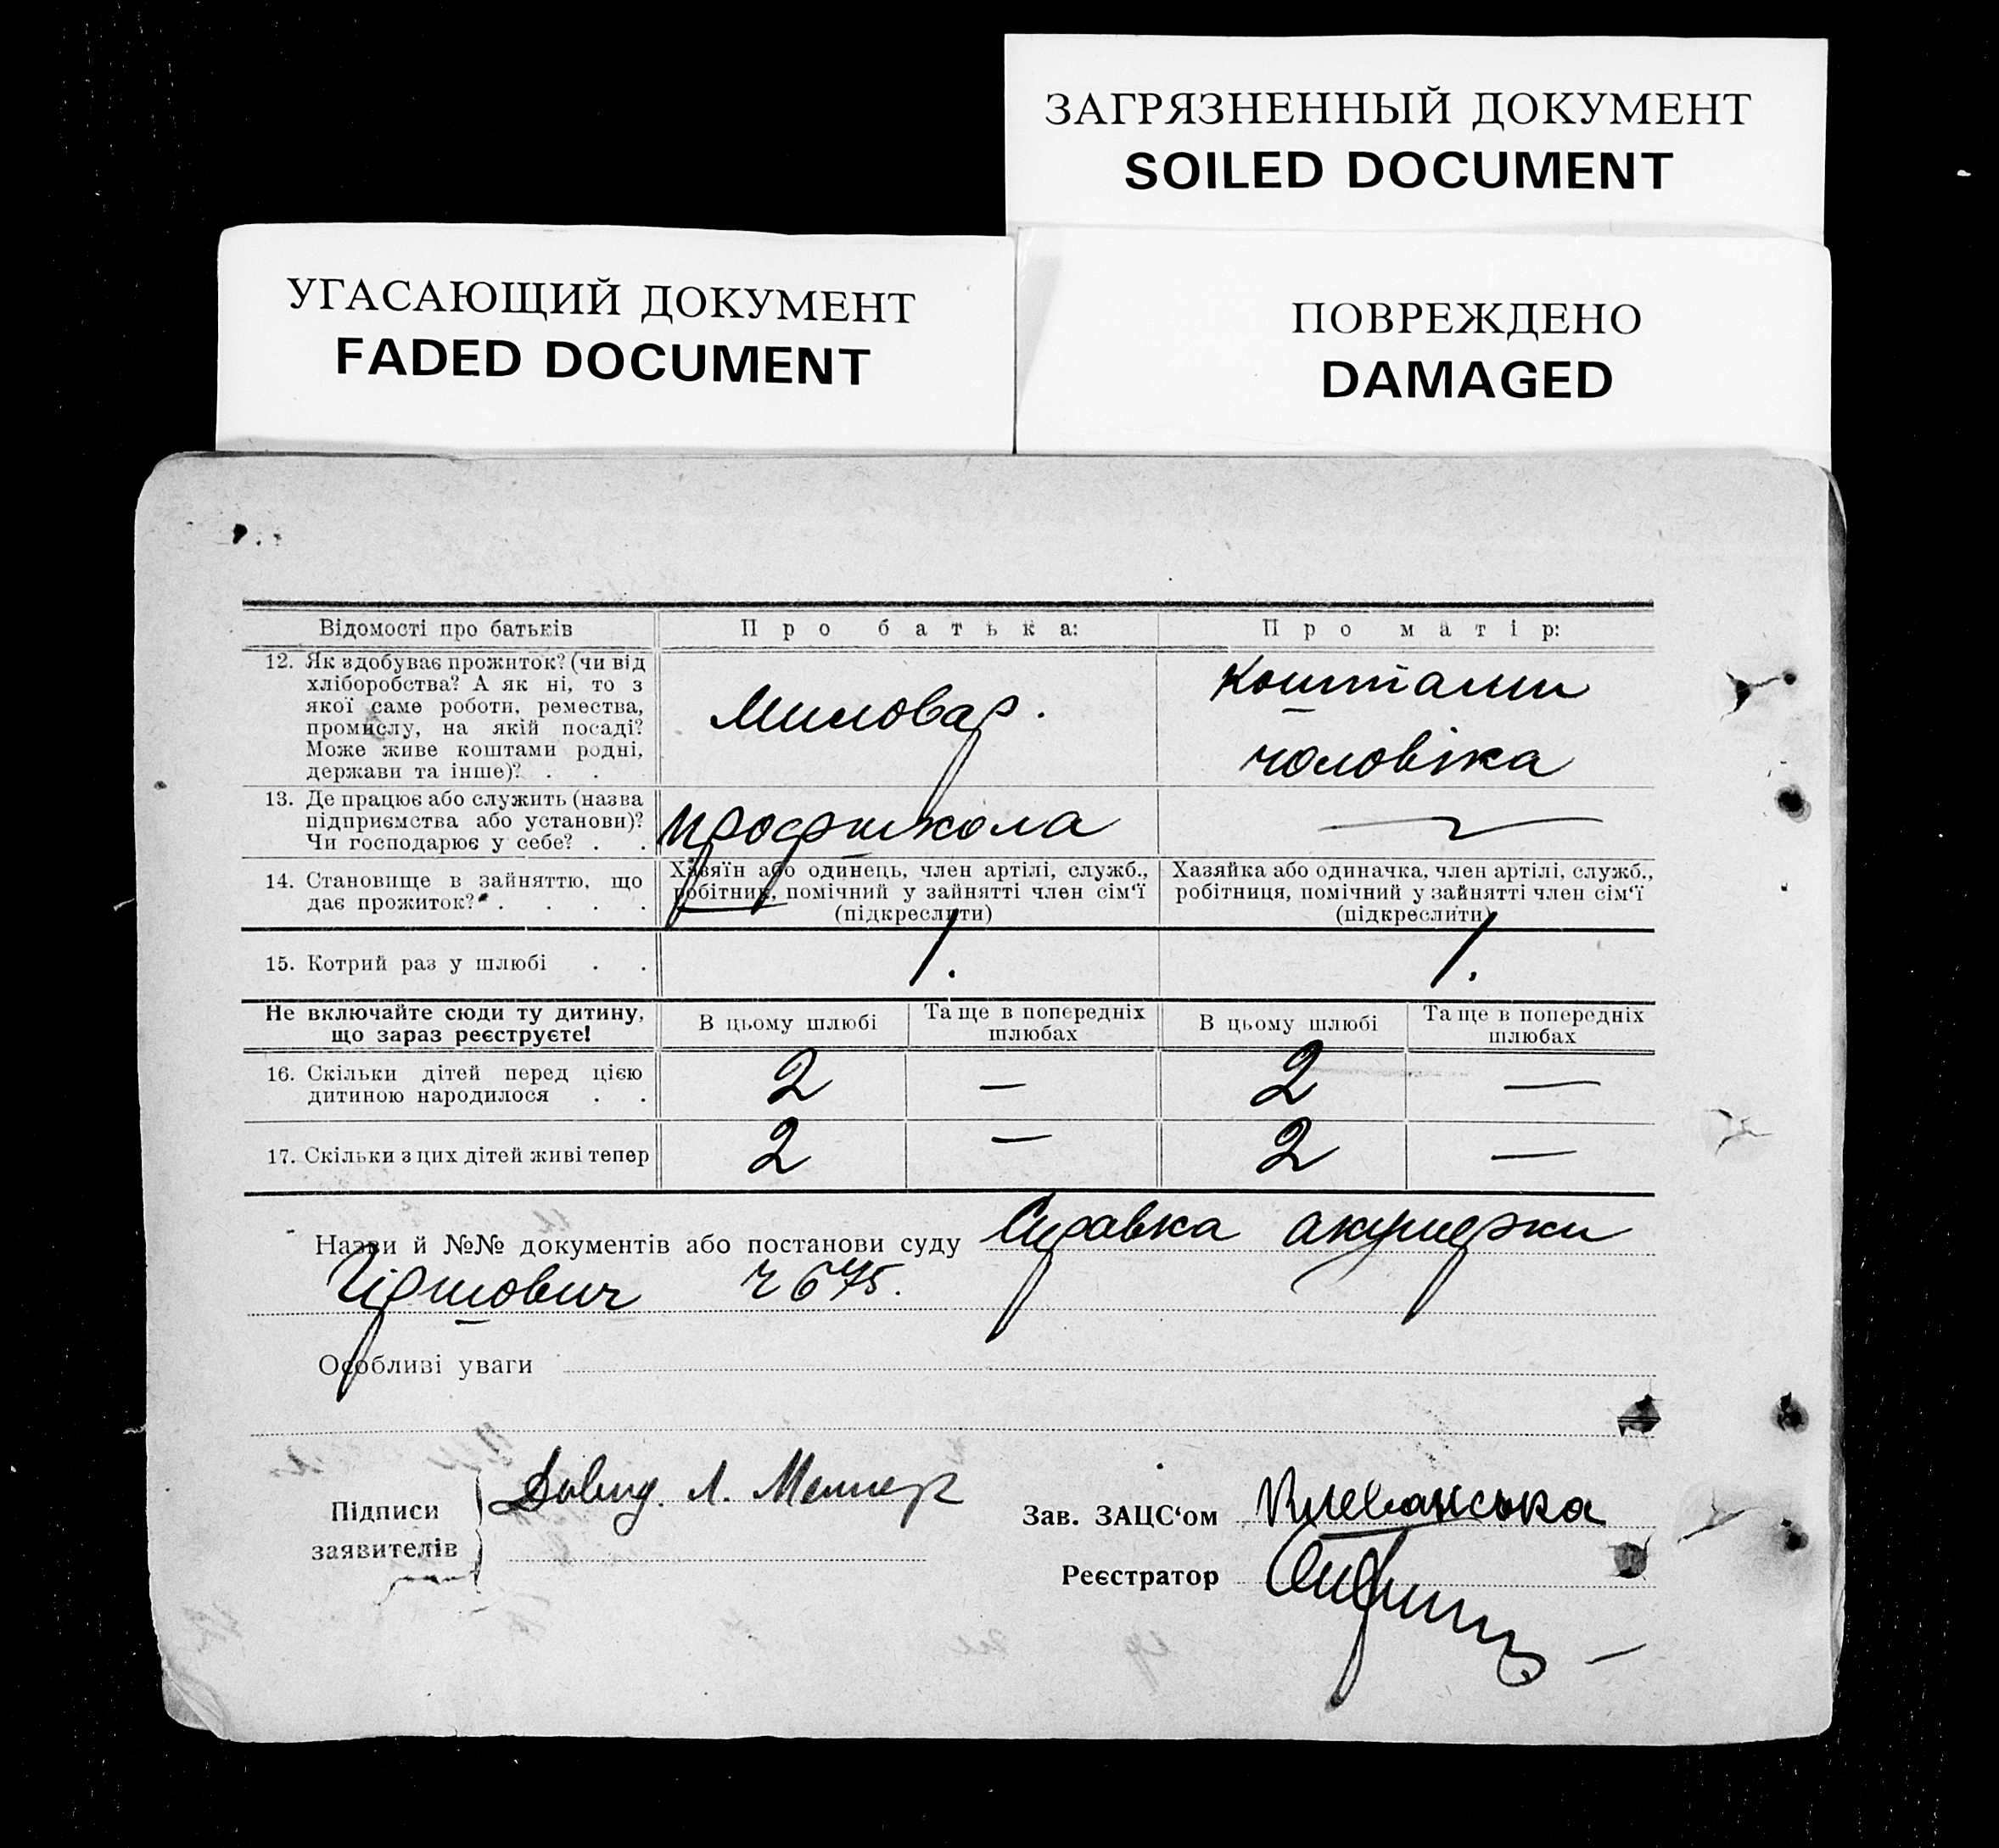 ЗАГРЯЗНЕННЫЙ ДОКУМЕНТ
SOILED DOCUMENT
УГАСАЮЩИЙ ДОКУМЕНТ
FADED DOCUMENT
ПОВРЕЖДЕНО
DAMAGED
Відомості про батьків
Про батька:
Про матір:
12. Як здобуває прожиток? (чи від
хліборобства? А як ні, то з
якої саме роботи, ремества,
промислу, на якій посаді?
Може живе коштами родні,
держави та інше)? . .
Миловар.
Коштами
чоловіка
13. Де працює або служить (назва
підприємства або установи)?
Чи господарює у себе? . .
Профшкола
—
14. Становище в зайняттю, що
дає прожиток? . . . .
Хазяїн або одинець, член артілі, служб.,
робітник, помічний у зайнятті член сім‘ї
(підкреслити)
Хазяйка або одиначка, член артілі, служб.,
робітниця, помічний у зайнятті член сім‘ї
(підкреслити)
15. Котрий раз у шлюбі . .
1.
1.
Не включайте сюди ту дитину,
що зараз реєструєте!
В цьому шлюбі
Та ще в попередніх
шлюбах
В цьому шлюбі
Та ще в попередніх
шлюбах
16. Скільки дітей перед цією
дитиною народилося . .
2
—
2
—
17. Скільки з цих дітей живі тепер
2
—
2
—
Назви й №№ документів або постанови суду Справка акушерки
Гіршович ч 675.
Особливі уваги
Підписи
заявителів
Давид. Л.
Зав. ЗАЦС‘ом
Реєстратор